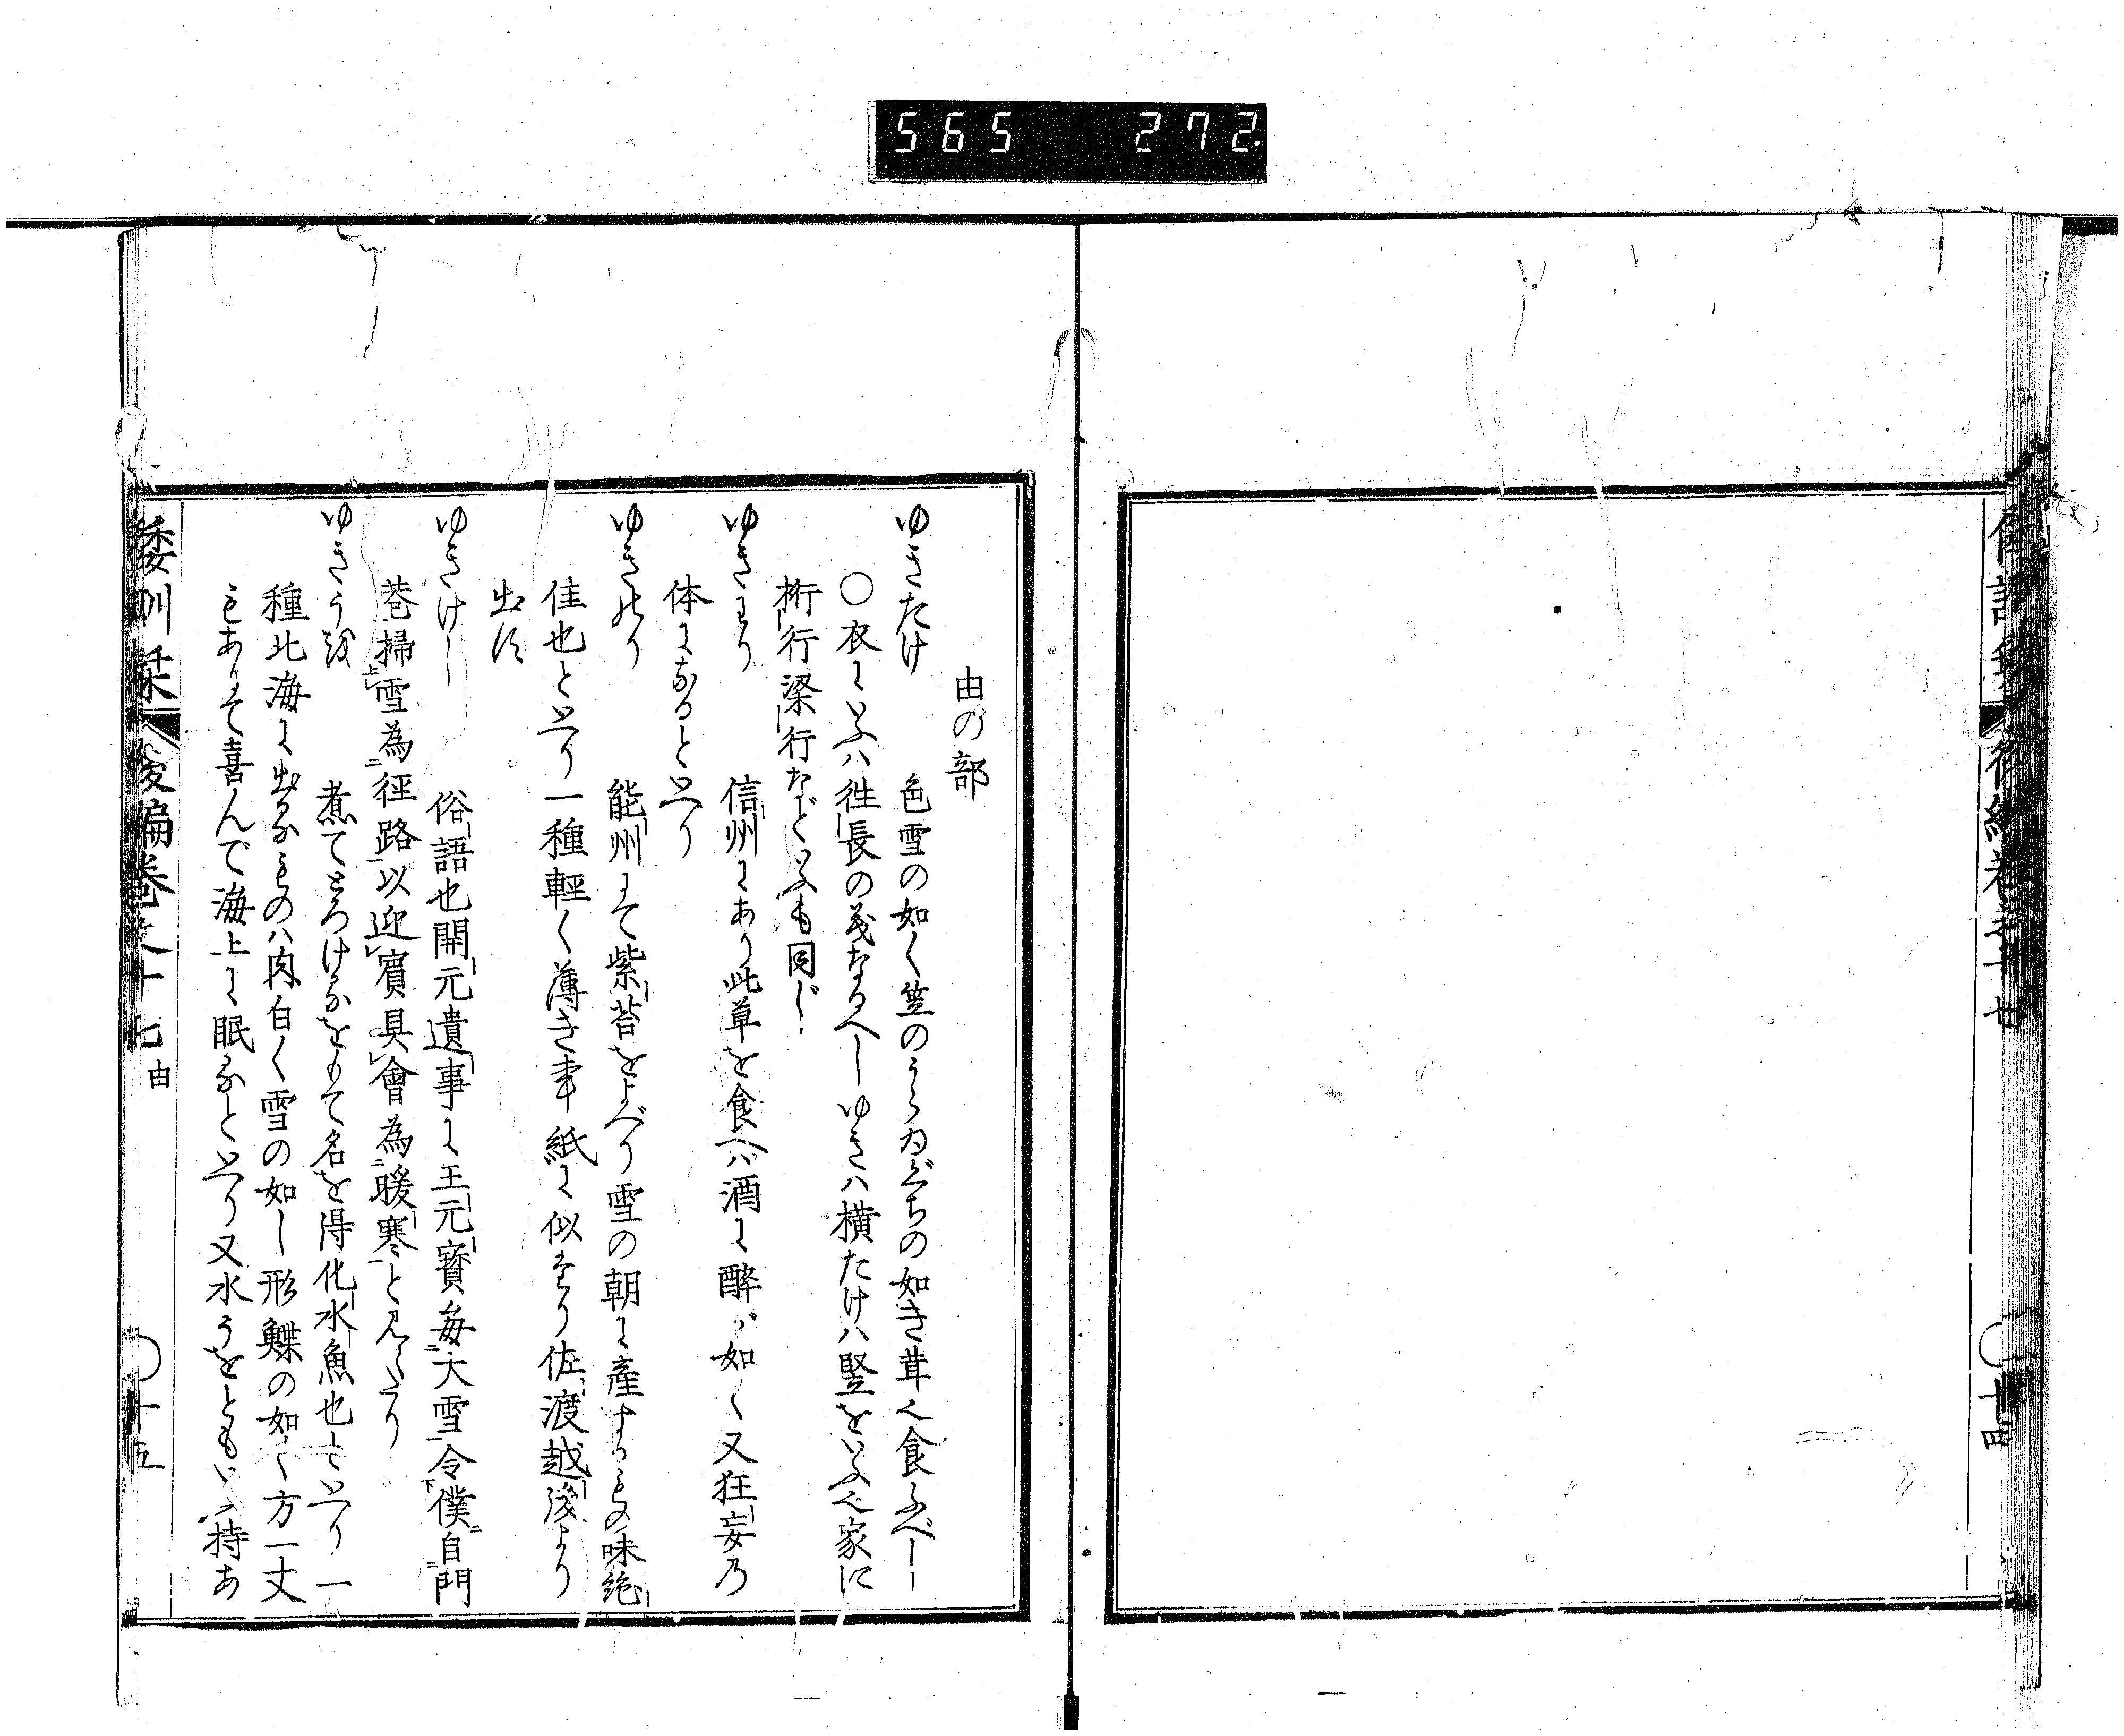 565 272
由の部
ゆきたけ 色雪の如く笠のうらわざちの如き茸也食ふべし
○衣にいふハ往長の義なるへしゆきハ横たけハ竪をいふ也家に
桁行梁行などいふも同じ
ゆきわり 信州にあり此草を食へバ酒に酔が如く又狂妄乃
体になるといへり
ゆきのり 能州にて紫苔をよべり雪の朝に産するもの味絶
佳也といへり一種軽く薄き事紙に似たり佐渡越後より
出す
ゆきけし 俗語也開元遺事に王元寶毎大雪令僕自門
巷掃雪為徑路以迎賓具會為暖寒と見えたり
ゆきうを 煮てとろけるをもて名を得化水魚也といへり一
種北海に出るものハ肉白く雪の如し形鰈の如く方一丈
もありて喜んで海上に眠るといへり又水うをともいへり持あ
倭訓栞 後編巻之十七 由 ○十五
後編巻之十 ○十四